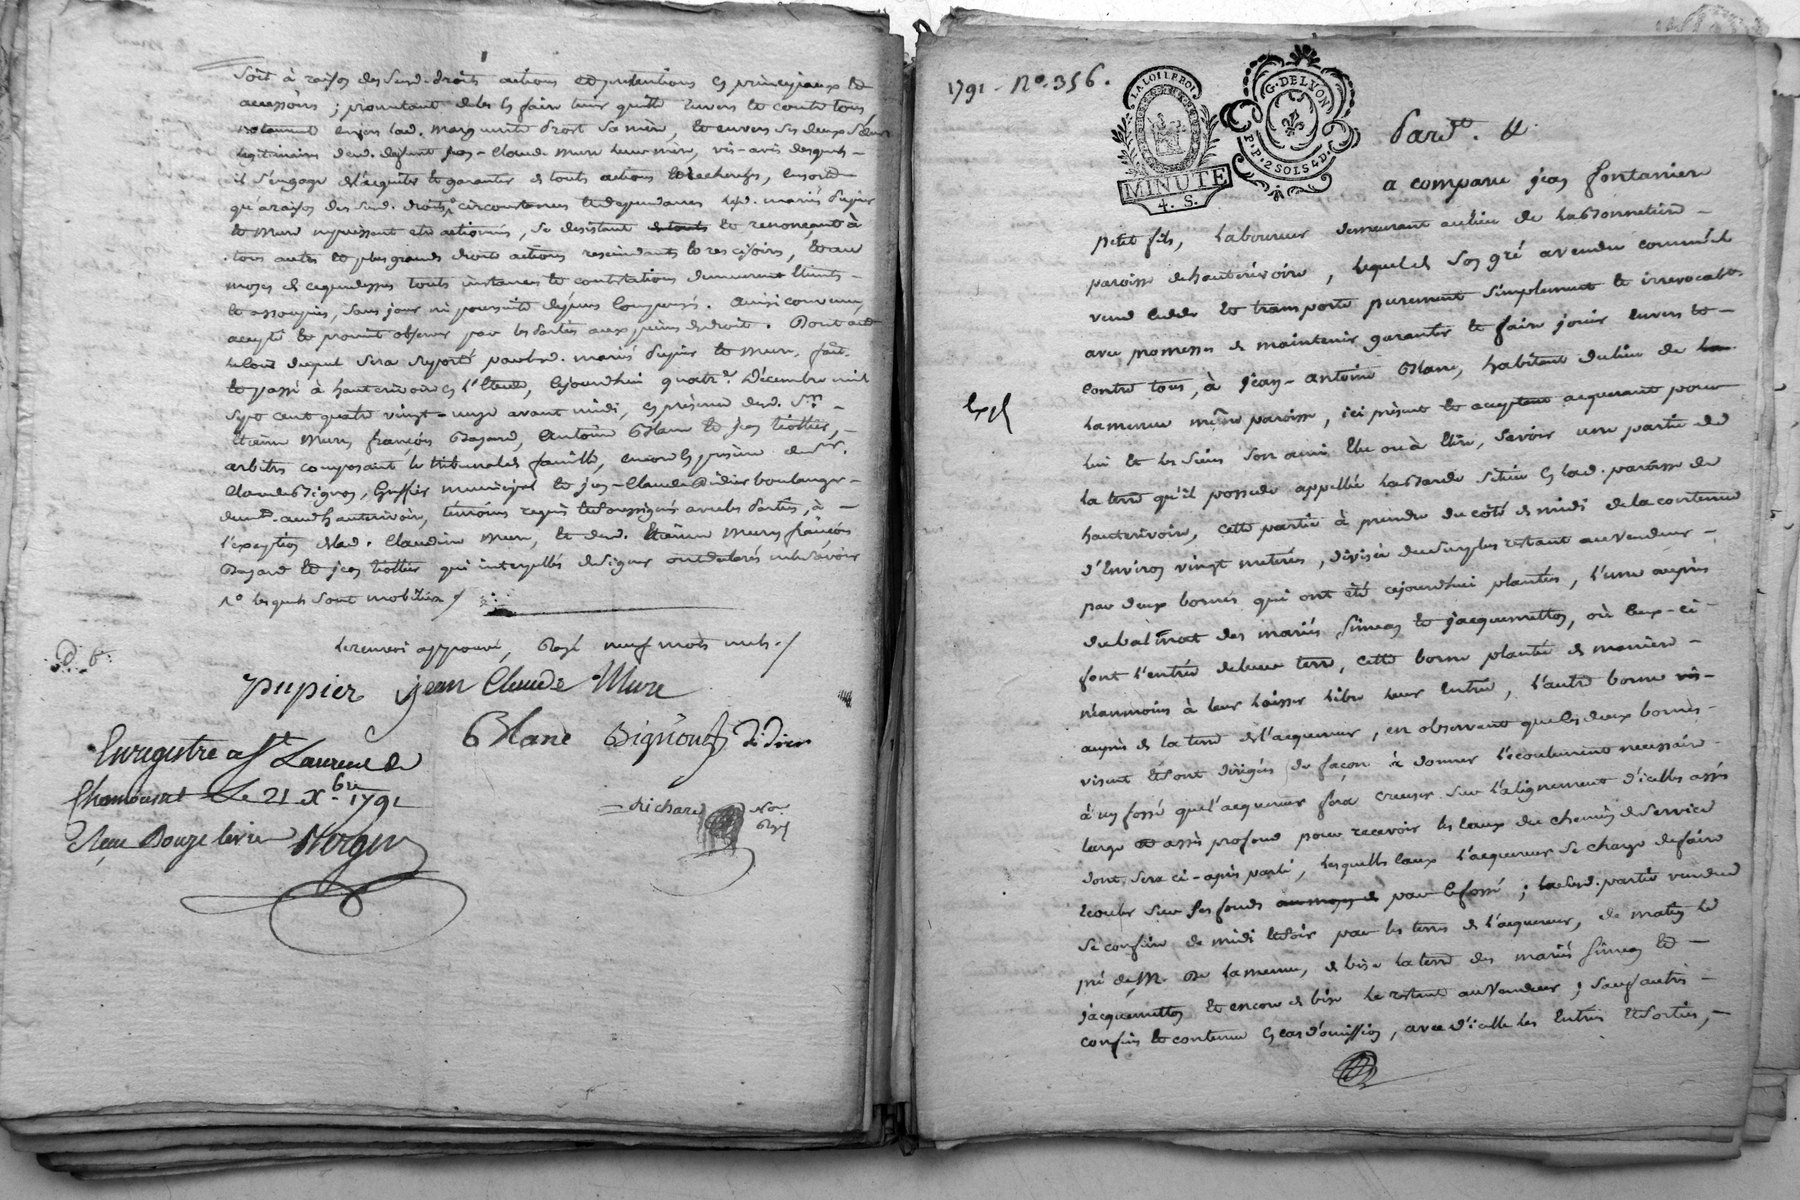 soit à raison des susd. droits actions et prétentions en principaux et
accessoires ; promettant de les en faire tenir quitte envers et contre tous,
notamment envers lad. marguerite sa mère, et envers ses deux sœurs
légitimaires dud. défunt jean-Claude mure leur père, vis-avis desquels
il s'engage d'acquitter et garantir de touts actions et recherches, ensorte
qu'a raison des susd. droits, circonstances et dependances lesd. mariés pupier
et mure ne puissent etre actionnés, se desistant et renonçant à
tous autres et plus grands droits actions rescindants et rescisoirs, et au
moyen de ce que dessus touts instances et contestations demeurent éteints
et assoupies, sans jour ni poursuite depens compensés. ainsi convenu,
accepté et promit observer par les parties aux peines de droit. Dont acte
sera suporté par lesd. mariés pupier et mure. fait
et passé à hauterivoire en l'Etude, cejourdhui quatre Décembre mil
sept cent quatre vingt-onze avant midi, en présence desd. Srs
Etienne mure, françois Bazard, antoine Blanc et jean
arbitres composant le tribunal de famille, encore en présence de Sr.
Claude Bignon, Greffier municipal et jean-Claude Didier boulanger
demts. aud hauterivoire, témoins requis et soussignés avec les parties, à
l'exception de lad. Claudine mure, et desd. Etienne mure françois
Bazard et jean qui interpellés de signer ont declarés ne le savoir
1° lesquels sont mobiliers /
le renvoi approuvé, Rayé neuf mots nuls /
pupier jean Claude Mure
Blanc Bignon Didier
Enregistré a St Laurent de
Chamousset Le 21 Xbre 1791
Reçu Douze livres
Richard Nore
Royal
1791 - No. 356.
LA LOI LE ROI
MINUTE
4. S.
G. DE LYON
P. P. 2 SOLS 4 D.
Pardt. &
a comparu jean fontanier
petit fils, laboureur demeurant au lieu de
paroisse de hauterivoire, lequel de son gré a vendu comme il
vend cedde et transporte purement simplement et irrevocabt.
avec promesses de maintenir garantir et faire jouir envers et
contre tous, à jean-antoine Blanc, habitant du lieu de la
même paroisse, ici présent et acceptant acquerant pour
lui et les siens son ami élu ou à élire, savoir une partie de
la terre qu'il possede appellée située en lad. paroisse de
hauterivoire, cette partie à prendre du côté de midi de la contenue
d'environ vingt meterés, divisée du surplus restant au vendeur
par deux bornes qui ont été cejourdhui plantées, l'une auprès
du des mariés Simean et jacquemetton, où ceux-ci
font l'entrée de leur terre, cette borne plantée de maniere
néanmoins à leur laisser libre leur entrée, l'autre borne vis-
auprès de la terre de l'acquereur, en observant que les deux bornes
visent et sont dirigées de façon à donner l'écoulement necessaire
à un fossé que l'acquereur fera creuser sur l'alignement d'icelles assés
large et assès profond pour recevoir les eaux du chemin de service
dont sera ci-après parlé, lesquelles eaux l'acquereur se charge de faire
écouler sur ses fonds par le fossé ; lad. partie vendue
se confine de midi et soir par les terres de l'acquereur, de matin le
pré de Mr. De lamenue, de bise la terre des mariés Simean et
jacquemetton et encore de bise le restant au vendeur ; sauf autres
confins et contenue en cas d'omission, avec d'icelle les entrées et sorties,